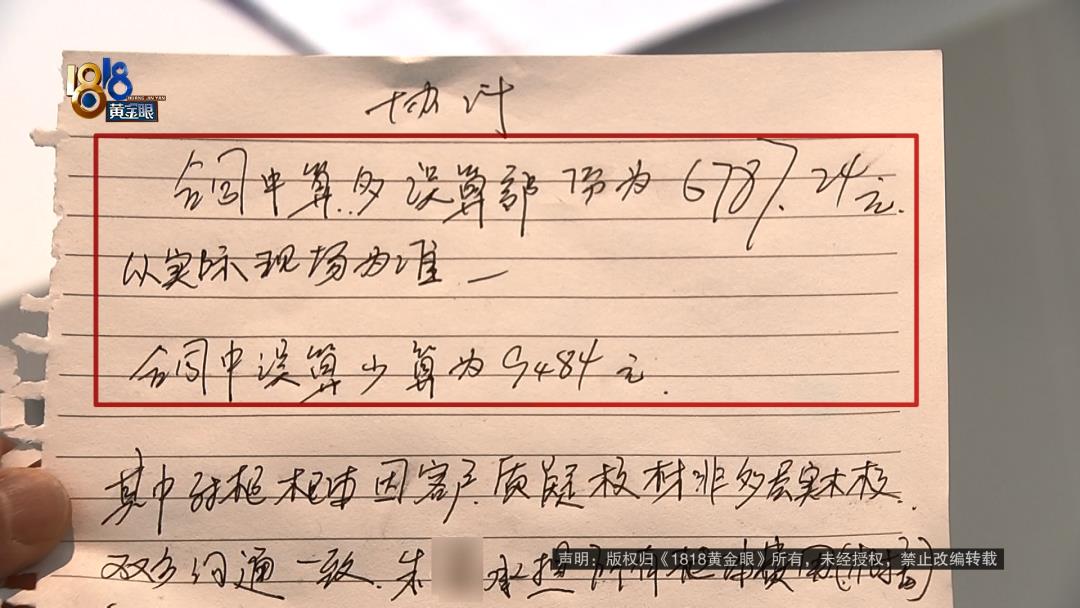 1818
HUANG JIN YAN
黄金眼
协议
合同中算多误算部份为6787.24元.
以实际现场为准
合同中误算少算为9484元.
其中 柜柜体因客户质疑板材非多层实木板.
双方沟通一致.朱 承担
声明：版权归《1818黄金眼》所有，未经授权，禁止改编转载